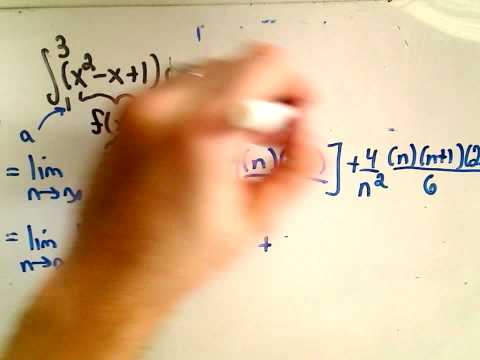 ∫₁³ (x²-x+1)
f(
a
= lim n→∞ (n)( ) ] + 4/n² (n)(n+1)(2/6
= lim n→ +